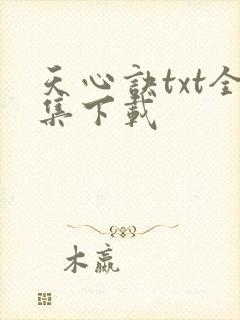 天心訣txt全
集下載
木嬴